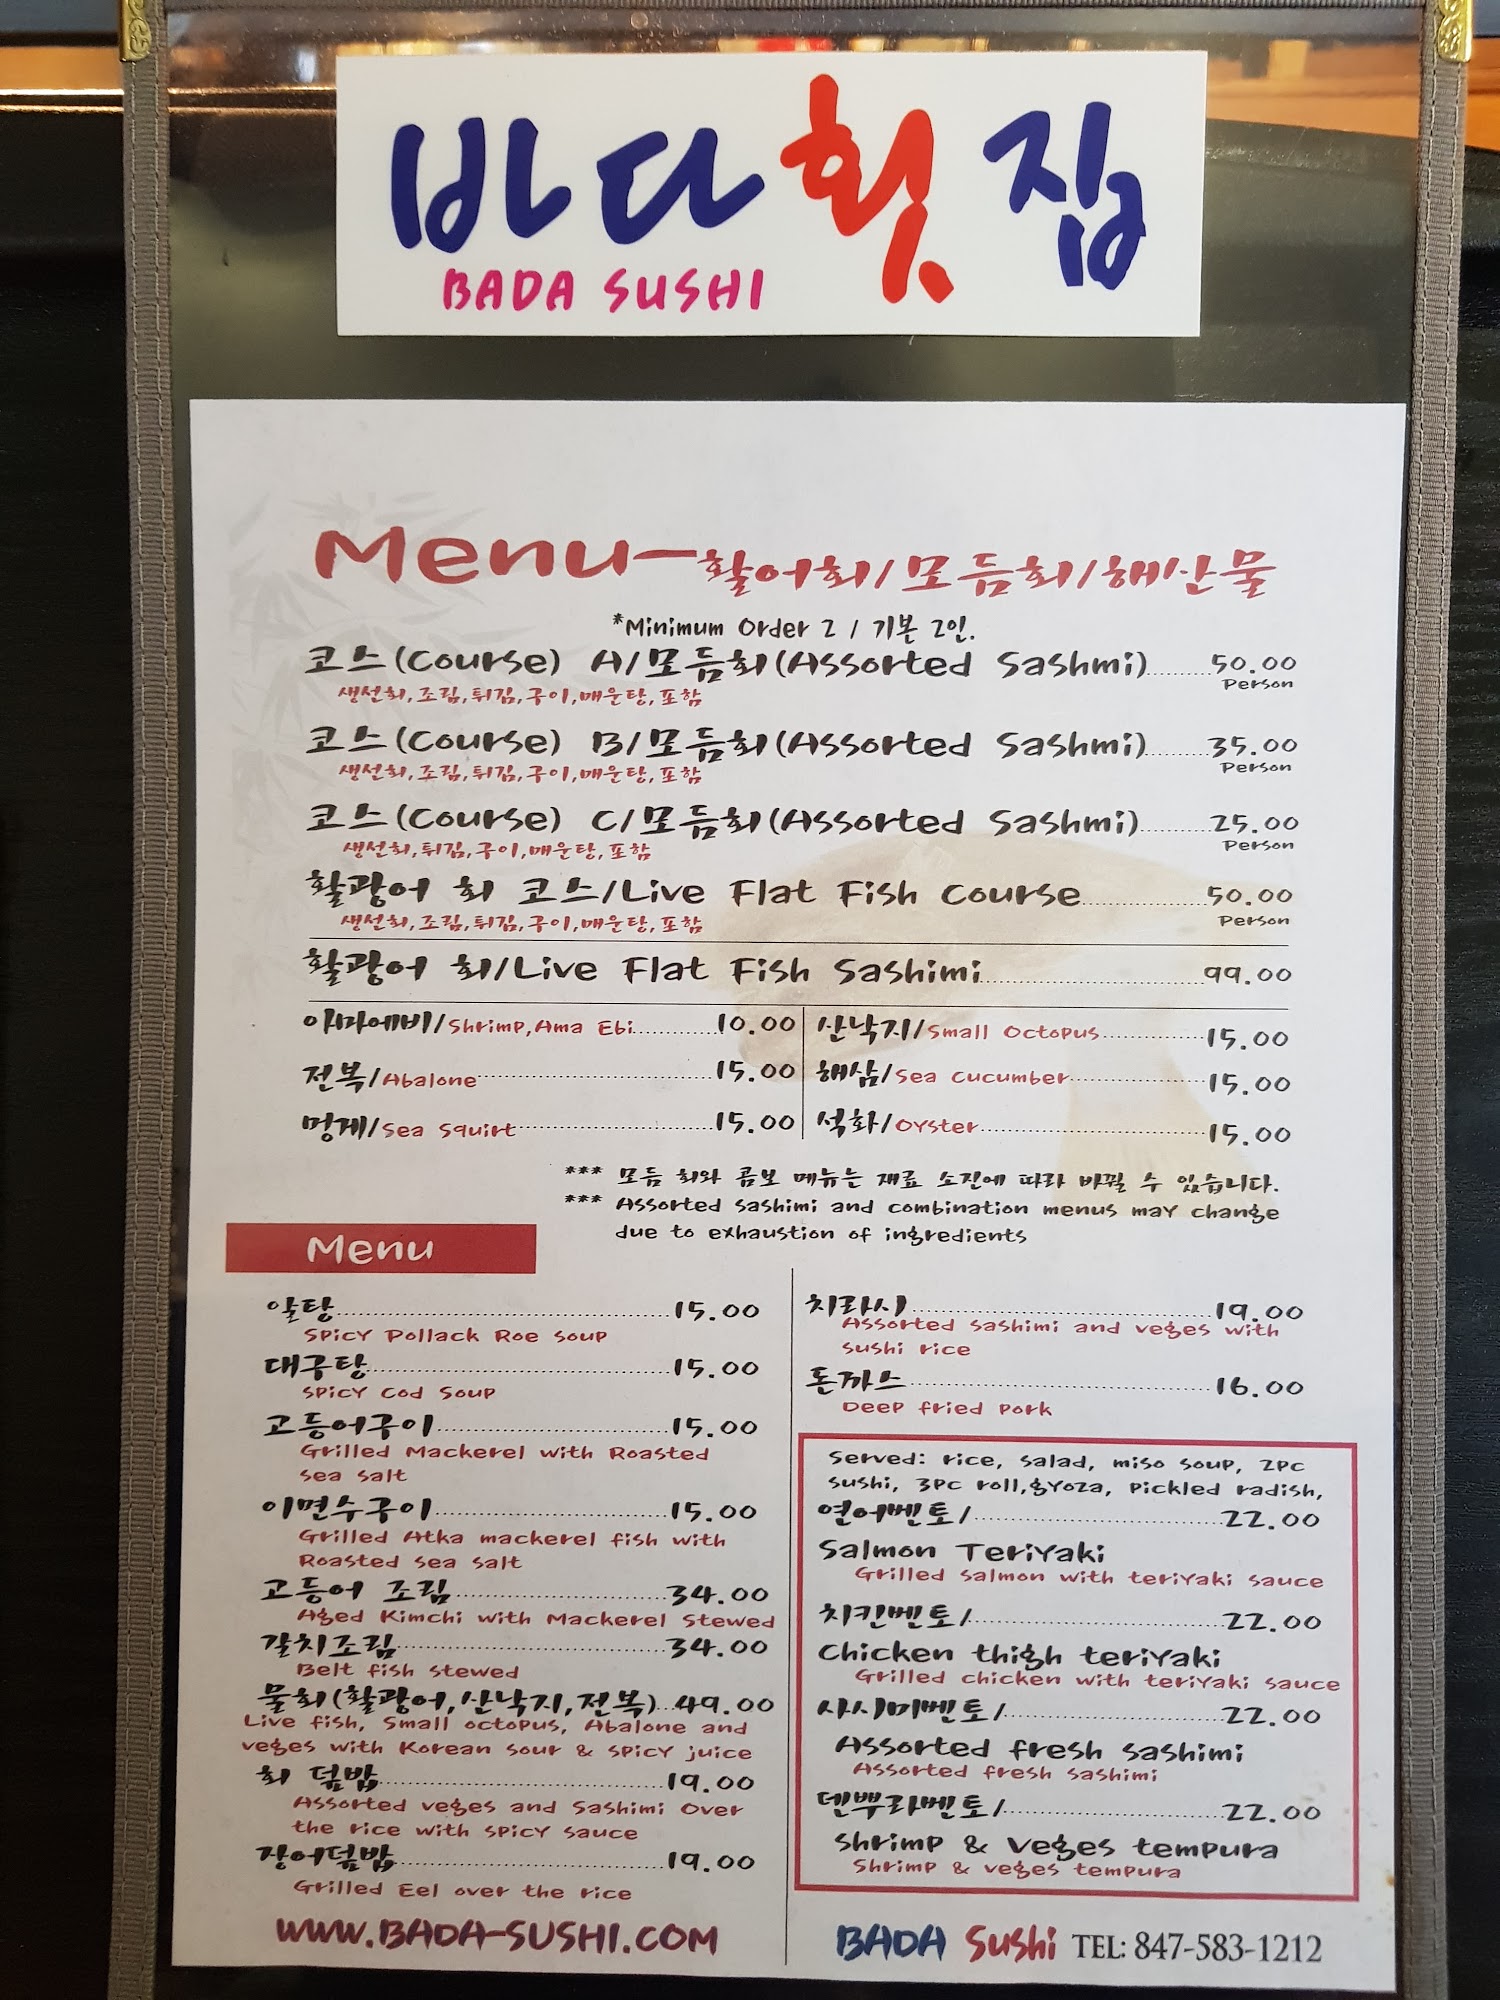 바다횟집
BADA SUSHI
Menu-활어회/모듬회/해산물
*Minimum Order 2 / 기본 2인.
코스(Course) A/모듬회(Assorted Sashmi) 50.00
Person
생선회,조림,튀김,구이,매운탕,포함
코스(Course) B/모듬회(Assorted Sashmi) 35.00
Person
생선회,조림,튀김,구이,매운탕,포함
코스(Course) C/모듬회(Assorted Sashmi) 25.00
Person
생선회,튀김,구이,매운탕,포함
활광어 회 코스/Live Flat Fish Course 50.00
Person
생선회,조림,튀김,구이,매운탕,포함
활광어 회/Live Flat Fish Sashimi 99.00
아마에비/Shrimp,Ama Ebi 10.00
전복/Abalone 15.00
멍게/Sea Squirt 15.00
산낙지/Small Octopus 15.00
해삼/Sea Cucumber 15.00
석화/Oyster 15.00
*** 모듬 회와 콤보 메뉴는 재료 소진에 따라 바뀔 수 있습니다.
*** Assorted sashimi and combination menus may change
due to exhaustion of ingredients
Menu
알탕 15.00
Spicy Pollack Roe Soup
대구탕 15.00
Spicy Cod Soup
고등어구이 15.00
Grilled Mackerel with Roasted
sea salt
이면수구이 15.00
Grilled Atka mackerel fish with
Roasted sea salt
고등어 조림 34.00
Aged Kimchi with Mackerel Stewed
갈치조림 34.00
Belt fish stewed
물회(활광어,산낙지,전복) 49.00
Live fish, Small octopus, Abalone and
veges with Korean sour & spicy juice
회 덮밥 19.00
Assorted veges and Sashimi Over
the rice with spicy sauce
장어덮밥 19.00
Grilled Eel over the rice
www.BADA-SUSHI.COM
치라시 19.00
Assorted sashimi and veges with
sushi rice
돈까스 16.00
Deep fried pork
Served: rice, salad, miso soup, 2pc
sushi, 3pc roll,gyoza, pickled radish,
연어벤토/ 22.00
Salmon Teriyaki
Grilled salmon with teriyaki sauce
치킨벤토/ 22.00
Chicken thigh teriyaki
Grilled chicken with teriyaki sauce
사시미벤토/ 22.00
Assorted fresh sashimi
Assorted fresh sashimi
덴뿌라벤토/ 22.00
Shrimp & Veges tempura
Shrimp & veges tempura
BADA Sushi TEL: 847-583-1212